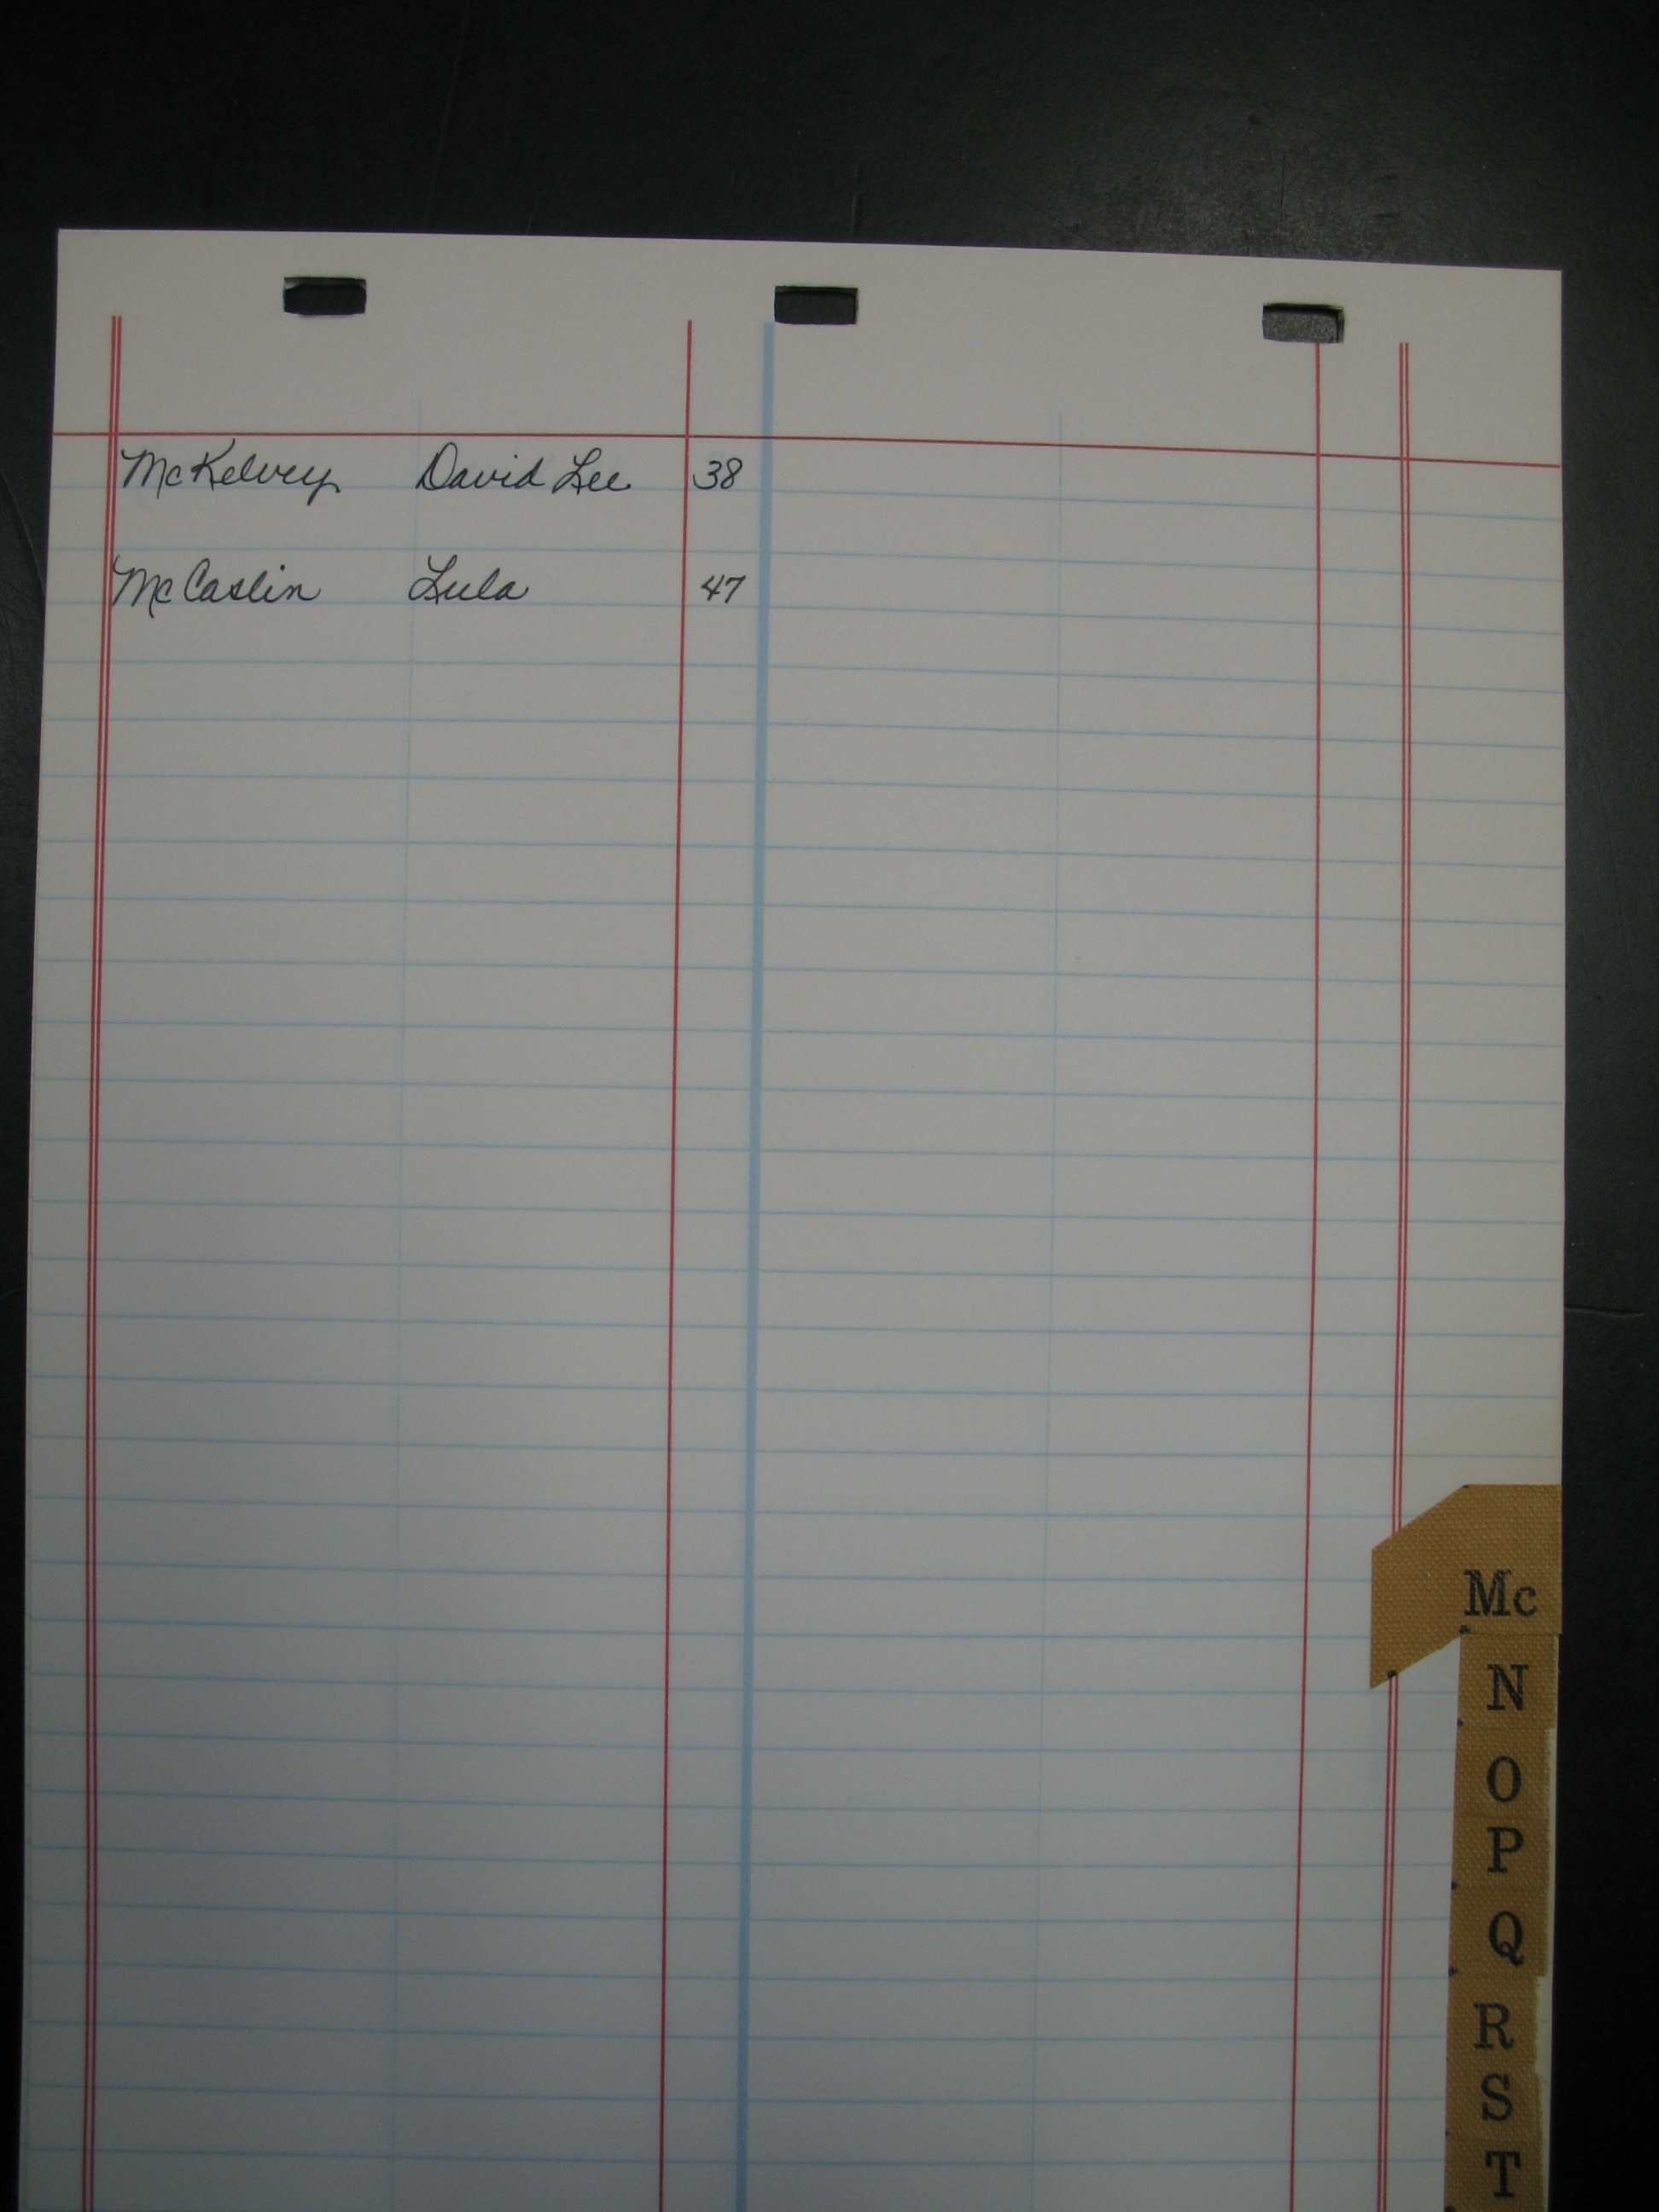 McKelvey David Lee 38
McCaslin Lula 47
Mc
N
O
P
Q
R
S
T